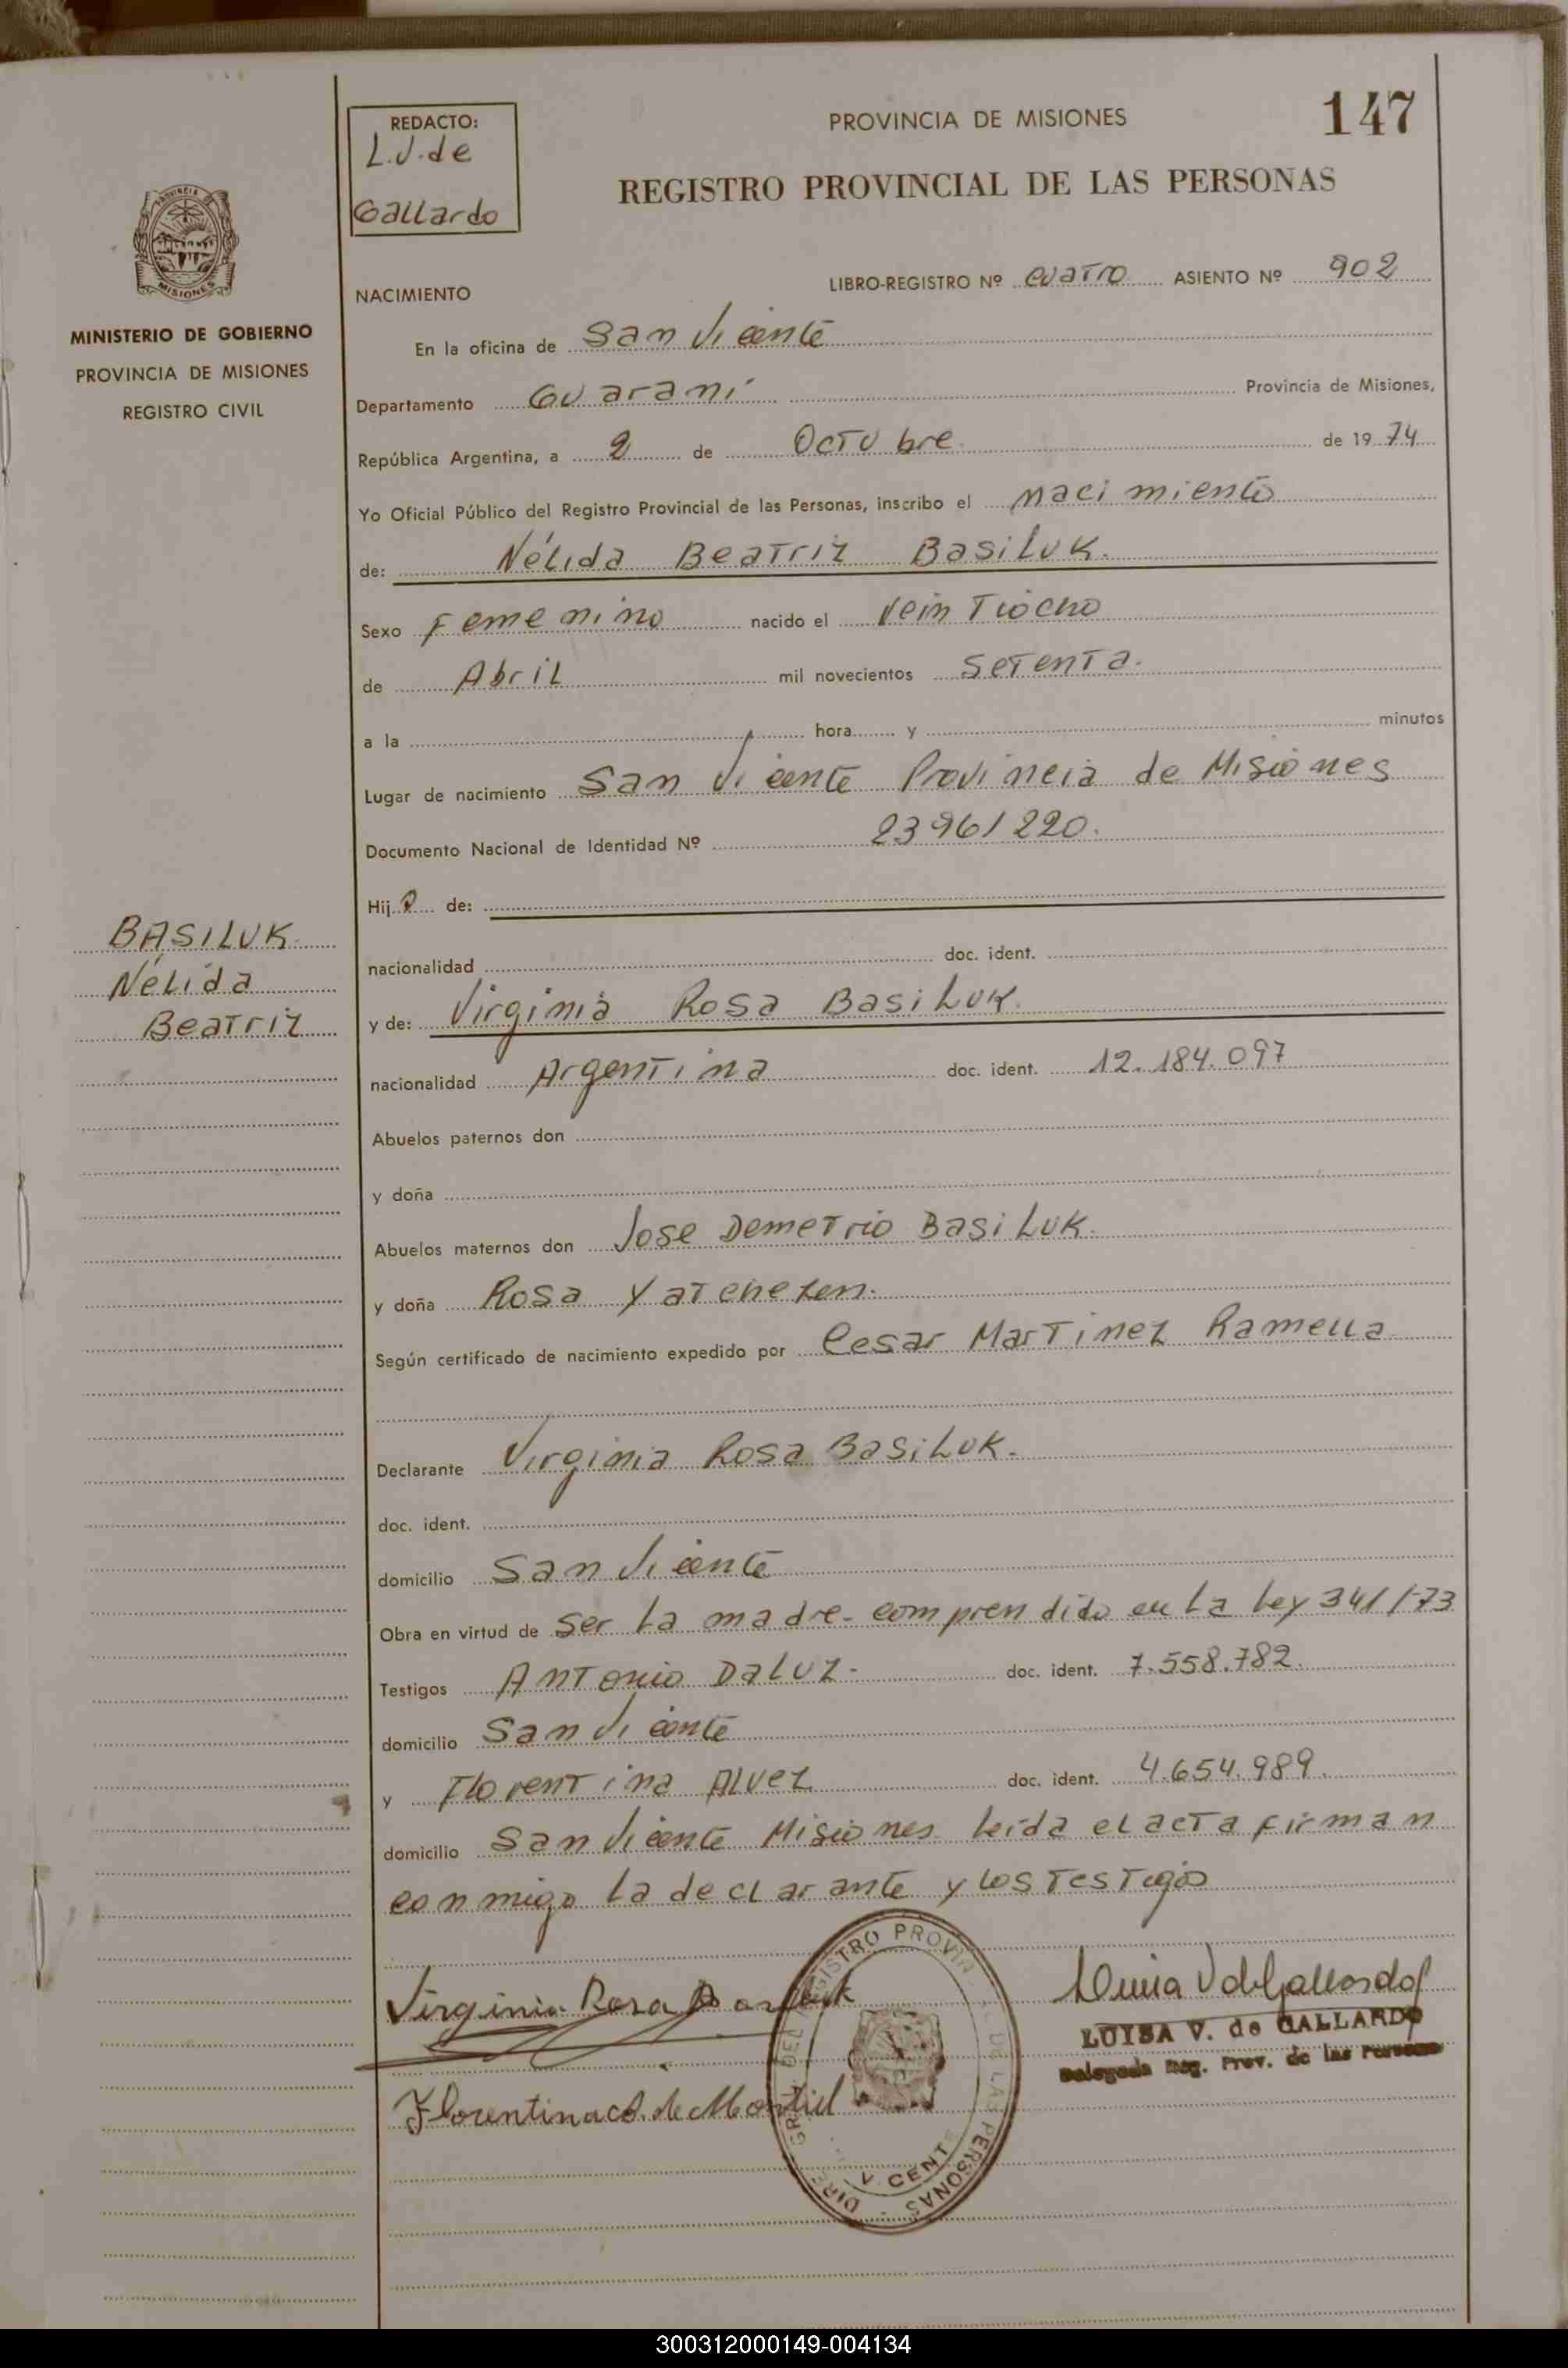 147
REDACTO:
L.V. de
Gallardo
PROVINCIA DE MISIONES
REGISTRO PROVINCIAL DE LAS PERSONAS
PROVINCIA
MISIONES
MINISTERIO DE GOBIERNO
PROVINCIA DE MISIONES
REGISTRO CIVIL
NACIMIENTO
LIBRO-REGISTRO Nº cuatro ASIENTO Nº 902
En la oficina de San Vicente
Departamento Guaraní Provincia de Misiones,
República Argentina, a 2 de Octubre de 1974
Yo Oficial Público del Registro Provincial de las Personas, inscribo el nacimiento
de: Nélida Beatriz Basiluk.
Sexo Femenino nacido el Veintiocho
de Abril mil novecientos setenta.
a la hora y minutos
Lugar de nacimiento San Vicente Provincia de Misiones
Documento Nacional de Identidad Nº 23961220.
Hija de:
nacionalidad doc. ident.
BASILUK
Nélida
Beatriz
y de: Virginia Rosa Basiluk
nacionalidad Argentina doc. ident. 12.184.097
Abuelos paternos don
y doña
Abuelos maternos don Jose Demetrio Basiluk.
y doña Rosa Yatchezen.
Según certificado de nacimiento expedido por Cesar Martinez Ramella
Declarante Virginia Rosa Basiluk.
doc. ident.
domicilio San Vicente
Obra en virtud de ser la madre- comprendido en la Ley 341/73
Testigos Antonio Daluz- doc. ident. 7.558.782.
domicilio San Vicente
y Florentina Alvez doc. ident. 4.654.989.
domicilio San Vicente Misiones leída el acta firman
conmigo la declarante y los testigos
Virginia Rosa Basiluk
Luisa V de Gallardo
LUISA V. de GALLARDO
Delegada Reg. Prov. de las Personas
Florentina A. de Montiel
DIRE GRAL DEL REGISTRO PROVIN L DE LAS PERSONAS
VICENTE
300312000149-004134